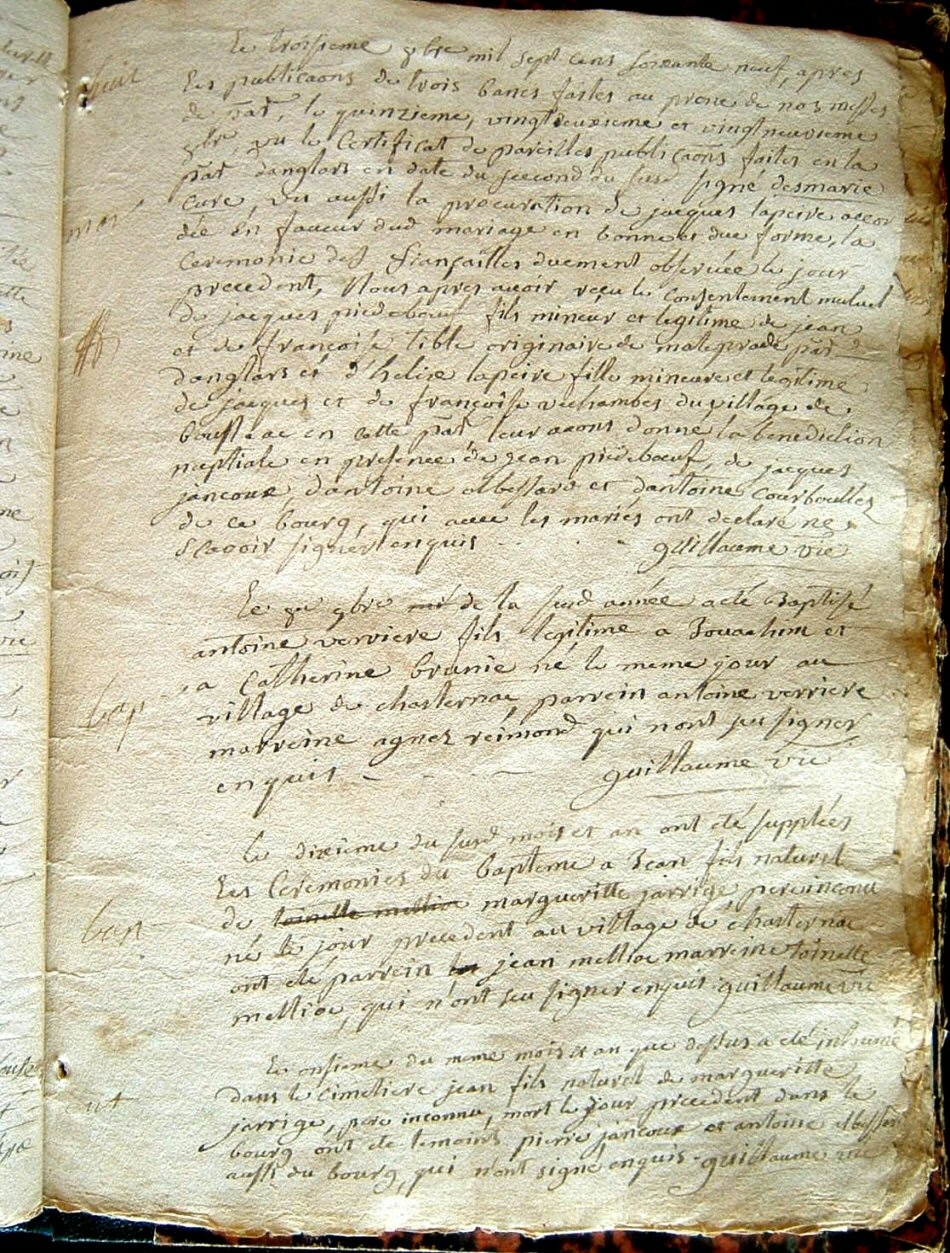 Le troisieme xbre mil sept cens soixante neuf, apres
les publicãons de trois bancs faites au prone de nos messes
de par̃ le quinzieme, vingtdeuxieme et vingtneuvieme
vu le Certificat de pareilles publicaõns faites en la
par̃ danglars en date du second du susd signé desmarie
Cure, vu aussi la procuration de jacques lapeire accor
dée en faveur dud mariage en bonne et due forme, la
Ceremonie des fiançailles duement observée le jour
precedent, Nous apres avoir reçu le Consentement mutuel
de jacques piedebœuf fils mineur et legitime de jean
et de françoise tible originaire de maleprade par̃
danglars et d'helixe lapeire fille mineure et legitime
de jacques et de françoise vechambes du village de
boussac en cette par̃, leur avons donné la benediction
nuptiale en presence de jean piedebœuf, de jacques
jancoux dantoine albessard et dantoine Courboulles
de ce bourg, qui avec les mariés ont declaré ne
scavoir signér enquis - - - guillaume vie
mar
Le 9bre de la susd année a eté Baptisé
antoine verriere fils legitime a Jouachim et
a Catherine brunie né le meme jour au
village de chasternac, parrein antoine verriere
marreine agnez reimond qui n'ont seu signer
enquis - - guillaume vie
bap
Le dixieme du susd mois et an ont eté supplées
les Ceremonies du bapteme a Jean fils naturel
de toinette mettioe margueritte jarrige, pere inconu
né le jour precedent au village de chasternac
ont eté parrein jean mettioe marreine toinette
mettioe, qui n'ont seu signer enquis guillaume vie
bap
Le onsieme du meme mois et an que dessus a eté inhumé
dans le Cimetiere jean fils naturel de margueritte
jarrige, pere inconnu, mort le jour precedent dans le
bourg ont eté temoins pierre jancoux et antoine albessard
aussi du bourg, qui n'ont signé enquis - guillaume vie